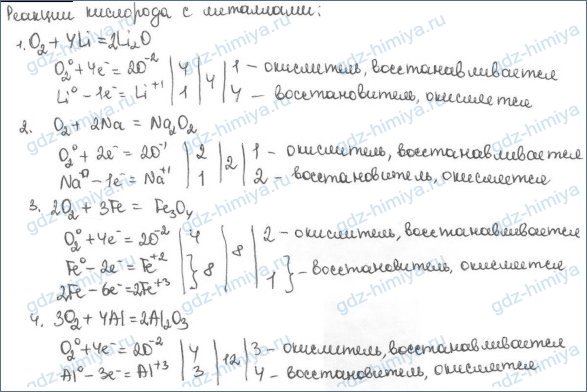 Реакции кислорода с металлами:
1. O₂ + 4Li = 2Li₂O
O₂⁰ + 4e⁻ = 2O⁻² | 4 | 4 | 1 – окислитель, восстанавливается
Li⁰ – 1e⁻ = Li⁺¹ | 1 | | 4 – восстановитель, окисляется
2. O₂ + 2Na = Na₂O₂
O₂⁰ + 2e⁻ = 2O⁻¹ | 2 | 2 | 1 – окислитель, восстанавливается
Na⁰ – 1e⁻ = Na⁺¹ | 1 | | 2 – восстановитель, окисляется
3. 2O₂ + 3Fe = Fe₃O₄
O₂⁰ + 4e⁻ = 2O⁻² | 4 | 8 | 2 – окислитель, восстанавливается
Fe⁰ – 2e⁻ = Fe⁺² | } 8 | | 1 } – восстановитель, окисляется
2Fe – 6e⁻ = 2Fe⁺³
4. 3O₂ + 4Al = 2Al₂O₃
O₂⁰ + 4e⁻ = 2O⁻² | 4 | 12 | 3 – окислитель, восстанавливается
Al⁰ – 3e⁻ = Al⁺³ | 3 | | 4 – восстановитель, окисляется
gdz-himiya.ru